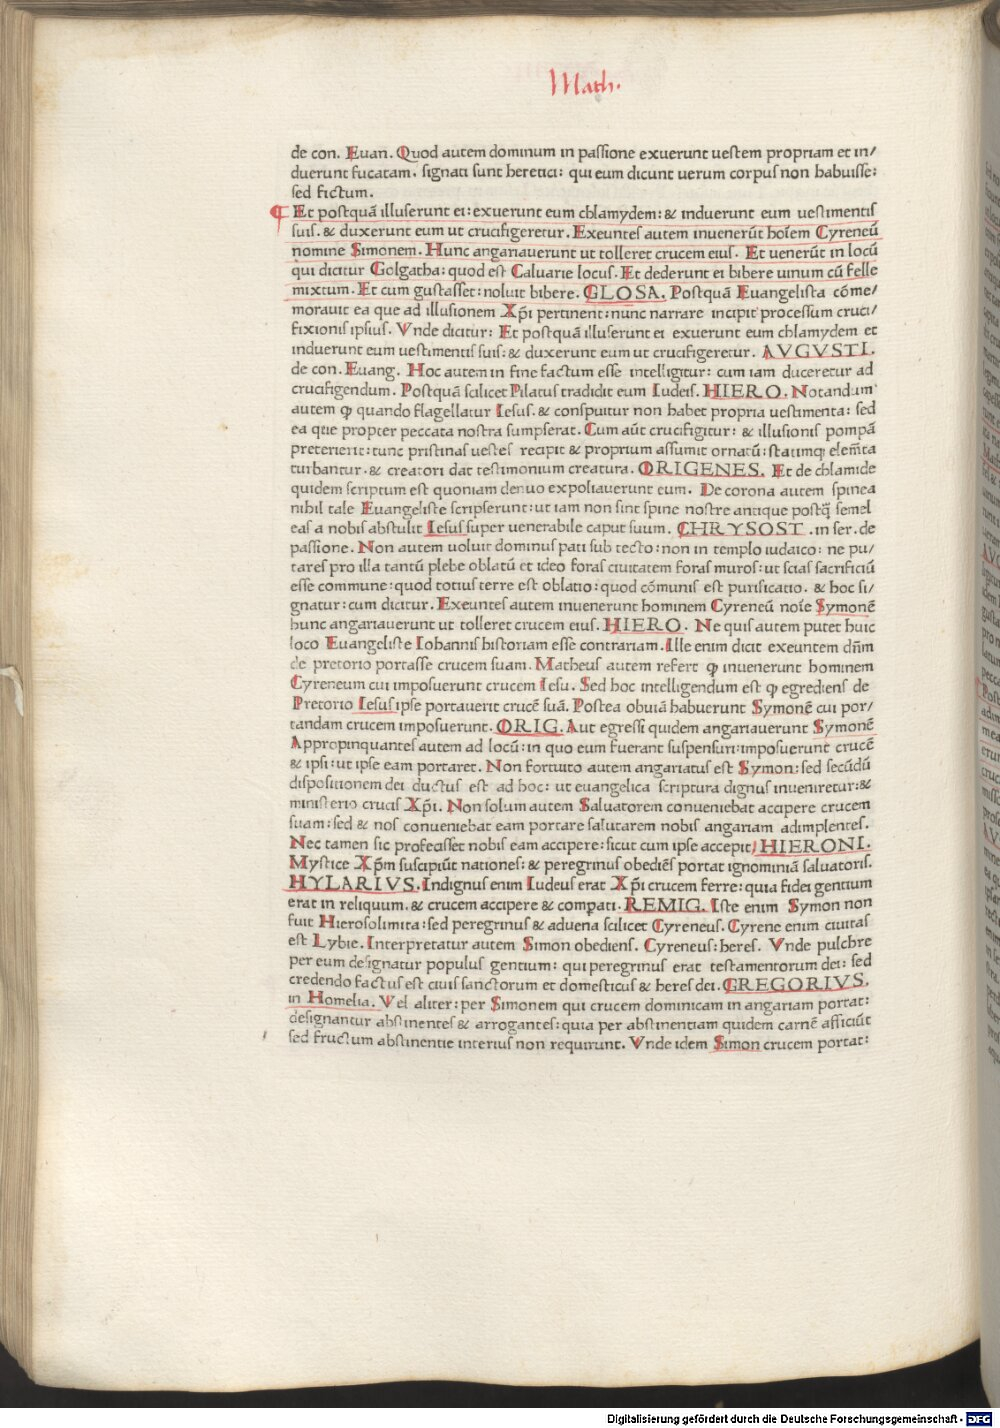 Math.
de con. Euan. Quod autem dominum in passione exuerunt uestem propriam et in/
duerunt fucatam. signati sunt heretici: qui eum dicunt uerum corpus non habuisse:
sed fictum.
¶ Et postquā illuserunt ei: exuerunt eum chlamydem: & induerunt eum uestimentis
suis. & duxerunt eum ut crucifigeretur. Exeuntes autem inuenerūt hoiem Cyreneū
nomine Simonem. Hunc angariauerunt ut tolleret crucem eius. Et uenerūt in locū
qui dicitur Golgatha: quod est Caluarie locus. Et dederunt ei bibere uinum cū felle
mixtum. Et cum gustasset: noluit bibere. GLOSA. Postquā Euangelista cōme/
morauit ea que ad illusionem Xp̄i pertinent: nunc narrare incipit processum cruci/
fixionis ipsius. Vnde dicitur: Et postquā illuserunt ei exuerunt eum chlamydem et
induerunt eum uestimentis suis: & duxerunt eum ut crucifigeretur. AVGVSTI.
de con. Euang. Hoc autem in fine factum esse intelligitur: cum iam duceretur ad
crucifigendum. Postquā scilicet Pilatus tradidit eum Iudeis. HIERO. Notandum
autem ꝙ quando flagellatur Iesus. & conspuitur non habet propria uestimenta: sed
ea que propter peccata nostra sumpserat. Cum aūt crucifigitur: & illusionis pompā
preterierit: tunc pristinas uestes recipit & proprium assumit ornatū: statimq; elemēta
turbantur. & creatori dat testimonium creatura. ORIGENES. Et de chlamide
quidem scriptum est quoniam denuo expoliauerunt eum. De corona autem spinea
nihil tale Euangeliste scripserunt: ut iam non sint spine nostre antique postq̄ semel
eas a nobis abstulit Iesus super uenerabile caput suum. CHRYSOST. in ser. de
passione. Non autem uoluit dominus pati sub tecto: non in templo iudaico: ne pu/
tares pro illa tantū plebe oblatū et ideo foras ciuitatem foras muros: ut scias sacrificiū
esse commune: quod totius terre est oblatio: quod cōmunis est purificatio. & hoc si/
gnatur: cum dicitur. Exeuntes autem inuenerunt hominem Cyreneū noīe Symonē
hunc angariauerunt ut tolleret crucem eius. HIERO. Ne quis autem putet huic
loco Euangeliste Iohannis historiam esse contrariam. Ille enim dicit exeuntem dn̄m
de pretorio portasse crucem suam. Matheus autem refert ꝙ inuenerunt hominem
Cyreneum cui imposuerunt crucem Iesu. Sed hoc intelligendum est ꝙ egrediens de
Pretorio Iesus ipse portauerit crucē suā. Postea obuiā habuerunt Symonē cui por/
tandam crucem imposuerunt. ORIG. Aut egressi quidem angariauerunt Symonē
Appropinquantes autem ad locū: in quo eum fuerant suspensuri: imposuerunt crucē
& ipsi: ut ipse eam portaret. Non fortuito autem angariatus est Symon: sed secūdū
dispositionem dei ductus est ad hoc: ut euangelica scriptura dignus inueniretur: &
ministerio crucis Xp̄i. Non solum autem Saluatorem conueniebat accipere crucem
suam: sed & nos conueniebat eam portare salutarem nobis angariam adimplentes.
Nec tamen sic profecisset nobis eam accipere: sicut cum ipse accepit HIERONI.
Mystice Xp̄m suscipiūt nationes: & peregrinus obediēs portat ignominiā saluatoris.
HYLARIVS. Indignus enim Iudeus erat Xp̄i crucem ferre: quia fidei gentium
erat in reliquum. & crucem accipere & compati. REMIG. Iste enim Symon non
fuit Hierosolimita: sed peregrinus & aduena scilicet Cyreneus. Cyrene enim ciuitas
est Lybie. Interpretatur autem Simon obediens. Cyreneus: heres. Vnde pulchre
per eum designatur populus gentium: qui peregrinus erat testamentorum dei: sed
credendo factus est ciuis sanctorum et domesticus & heres dei. GREGORIVS.
in Homelia. Vel aliter: per Simonem qui crucem dominicam in angariam portat:
designantur abstinentes & arrogantes: quia per abstinentiam quidem carnē afficiūt
sed fructum abstinentie interius non requirunt. Vnde idem Simon crucem portat:
Digitalisierung gefördert durch die Deutsche Forschungsgemeinschaft - DFG